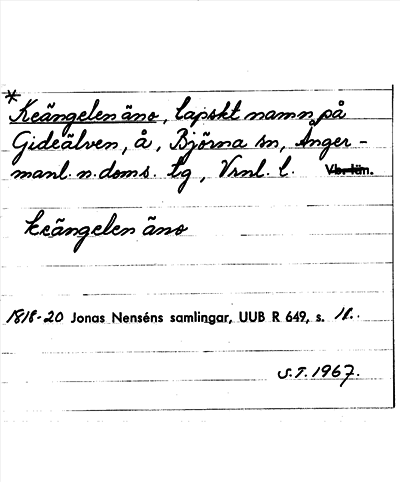 *
Keängelen äno, lapskt namn på
Gideälven, å, Björna sn, Ånger-
manl. n. doms. lg, Vrnl. l. Vbr-län.
keängelen äno
1818-20 Jonas Nenséns samlingar, UUB R 649, s. 11.
S.T. 1967.